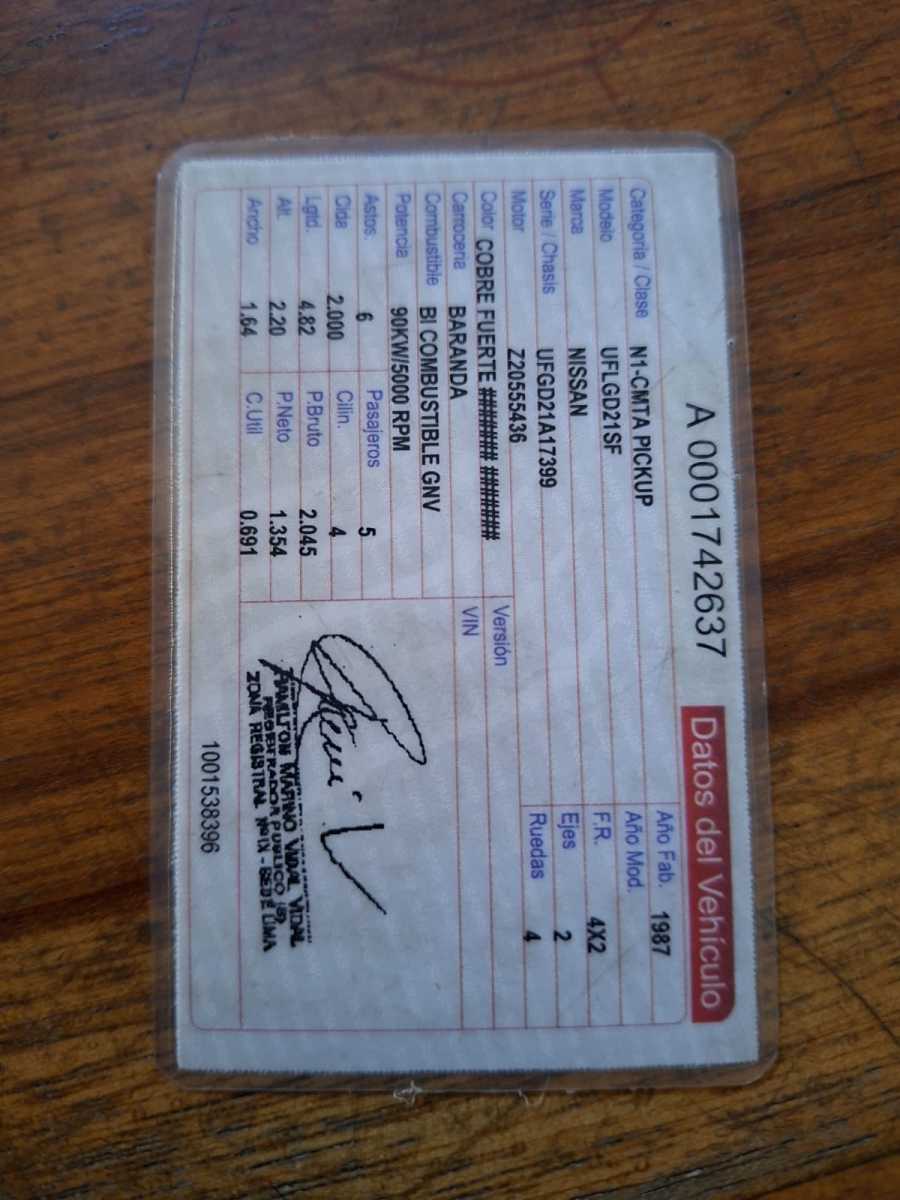 A 0001742637 Datos del Vehículo
Categoría / Clase N1-CMTA PICKUP Año Fab. 1987
Modelo UFLGD21SF Año Mod.
Marca NISSAN F.R. 4X2
Serie / Chasis UFGD21A17399 Ejes 2
Motor Z20555436 Ruedas 4
Color COBRE FUERTE ####### ####### Versión
Carrocería BARANDA VIN
Combustible BI COMBUSTIBLE GNV
Potencia 90KW/5000 RPM
Astos. 6 Pasajeros 5
Clda 2.000 Cilin. 4
Lgtd. 4.82 P.Bruto 2.045
Alt. 2.20 P.Neto 1.354
Ancho 1.64 C.Util 0.691
HAMILTON MARINO VIDAL VIDAL
REGISTRADOR PUBLICO (e)
ZONA REGISTRAL Nº IX - SEDE LIMA
1001538396